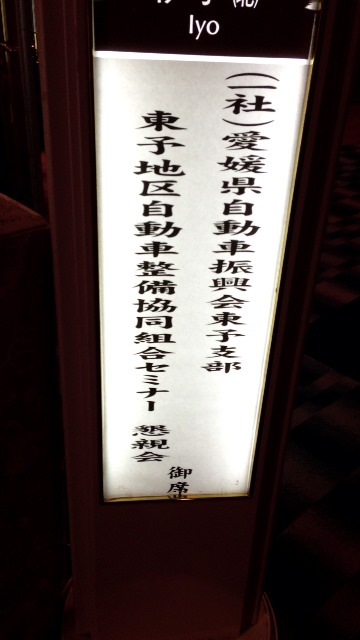 (北)
Iyo
(一社)愛媛県自動車振興会東予支部
東予地区自動車整備協同組合セミナー 懇親会
御席